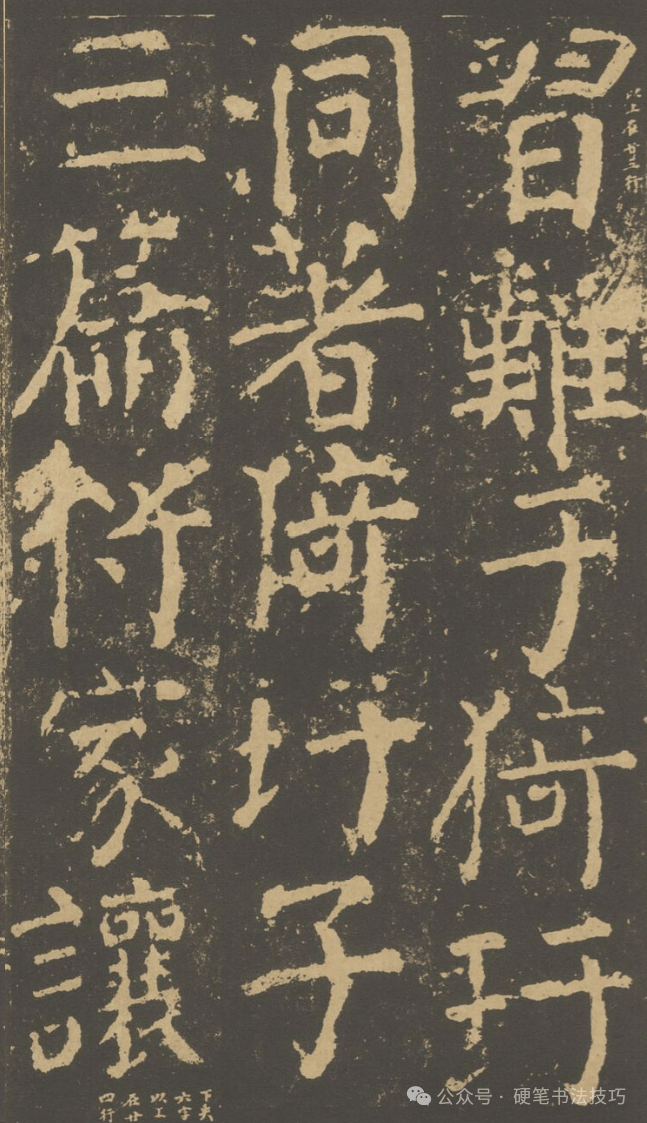 習難于猗玗
以上在廿三行
洞著倚圩子
三篇將家讓
下夾
六字
以上
在廿
四行
公众号·硬笔书法技巧